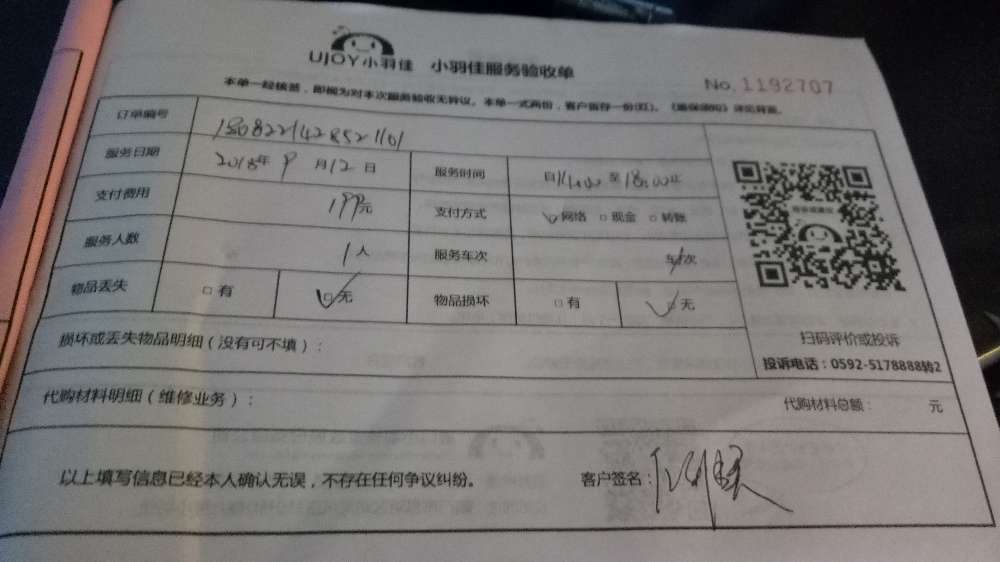 UJOY小羽佳 小羽佳服务验收单
No. 1192707
本单一经核签，即视为对本次服务验收无异议。本单一式两份，客户留存一份(红)。《温馨须知》详见背面。
订单编号 1808221428521101
服务日期 2018年9月12日 服务时间 自14:00至18:00止
支付费用 199元 支付方式 ☑网络 □现金 □转账
服务人数 1人 服务车次 车/次
物品丢失 □有 ☑无 物品损坏 □有 ☑无
扫码评价或投诉
投诉电话：0592-5178888转2
损坏或丢失物品明细（没有可不填）：
代购材料明细（维修业务）： 代购材料总额： 元
以上填写信息已经本人确认无误，不存在任何争议纠纷。 客户签名：